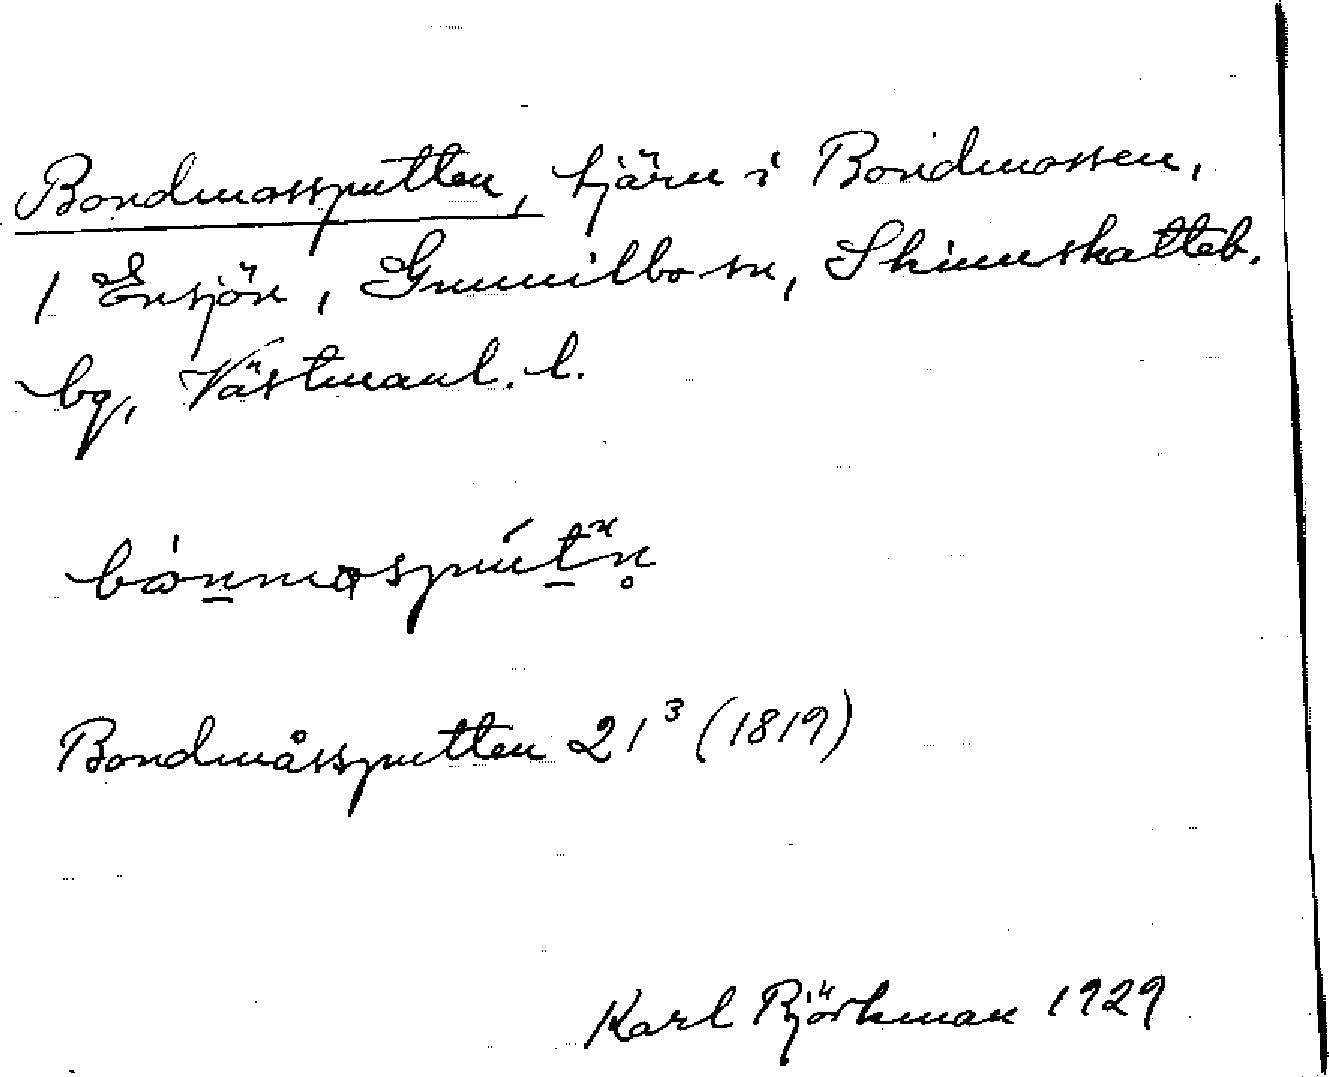 Bondmossputten, tjärn i Bondmossen,
1 Ensjön, Gunnilbo sn, Skinnskatteb.
bg, Västmanl. l.
Bondmåssputten 21³ (1819)
Karl Björkman 1929